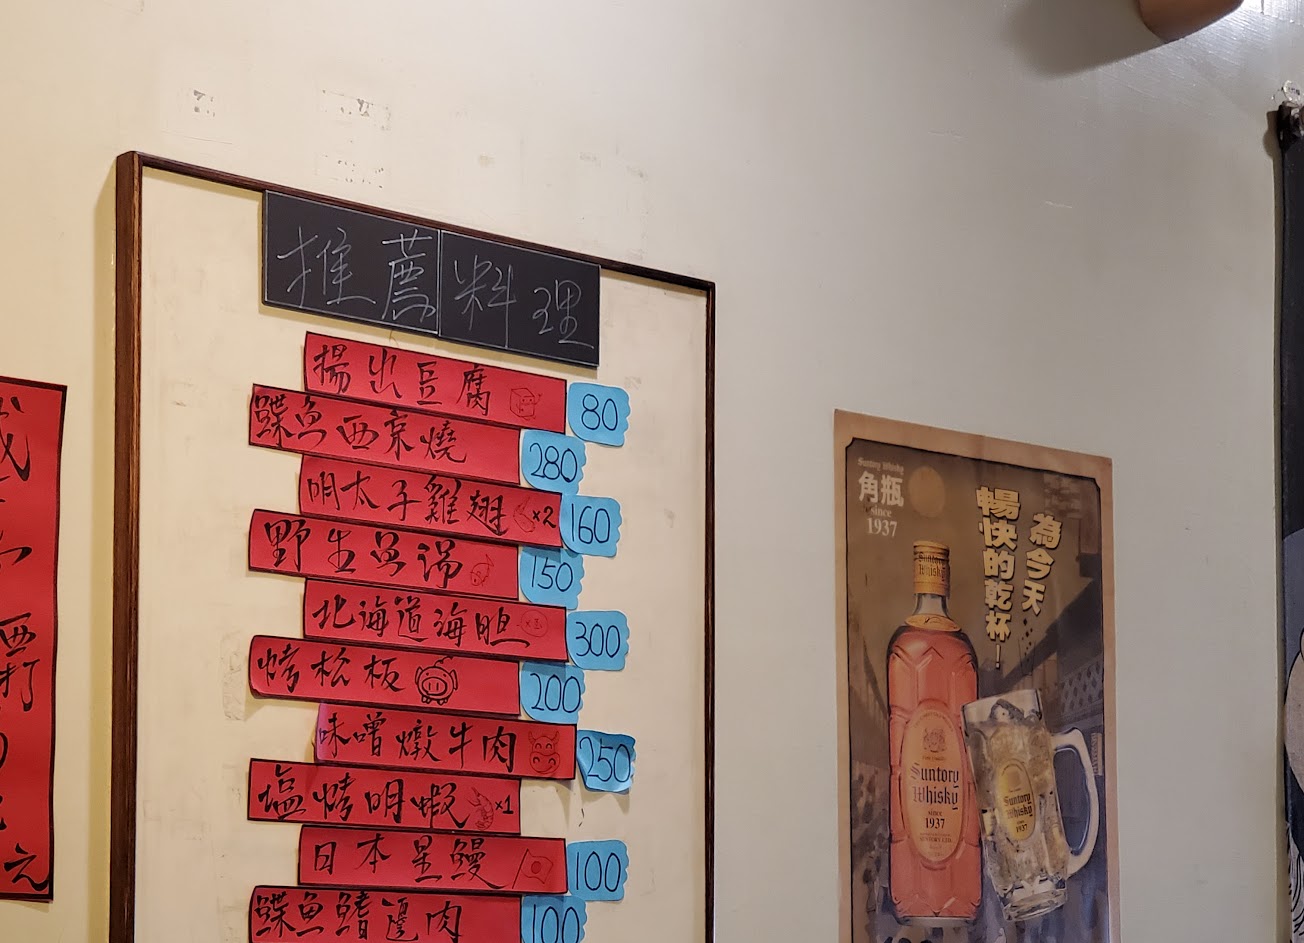 推薦料理
揚出豆腐
80
鰈魚西京燒
280
明太子雞翅 x2
160
野生魚湯
150
北海道海胆
300
烤松板
200
味噌燉牛肉
250
塩烤明蝦 x1
日本星鰻
100
鰈魚鰭邊肉
100
元
Suntory Whisky
角瓶
since
1937
為今天...
暢快的乾杯!
Suntory
Whisky
since
1937
Suntory
Whisky
1937